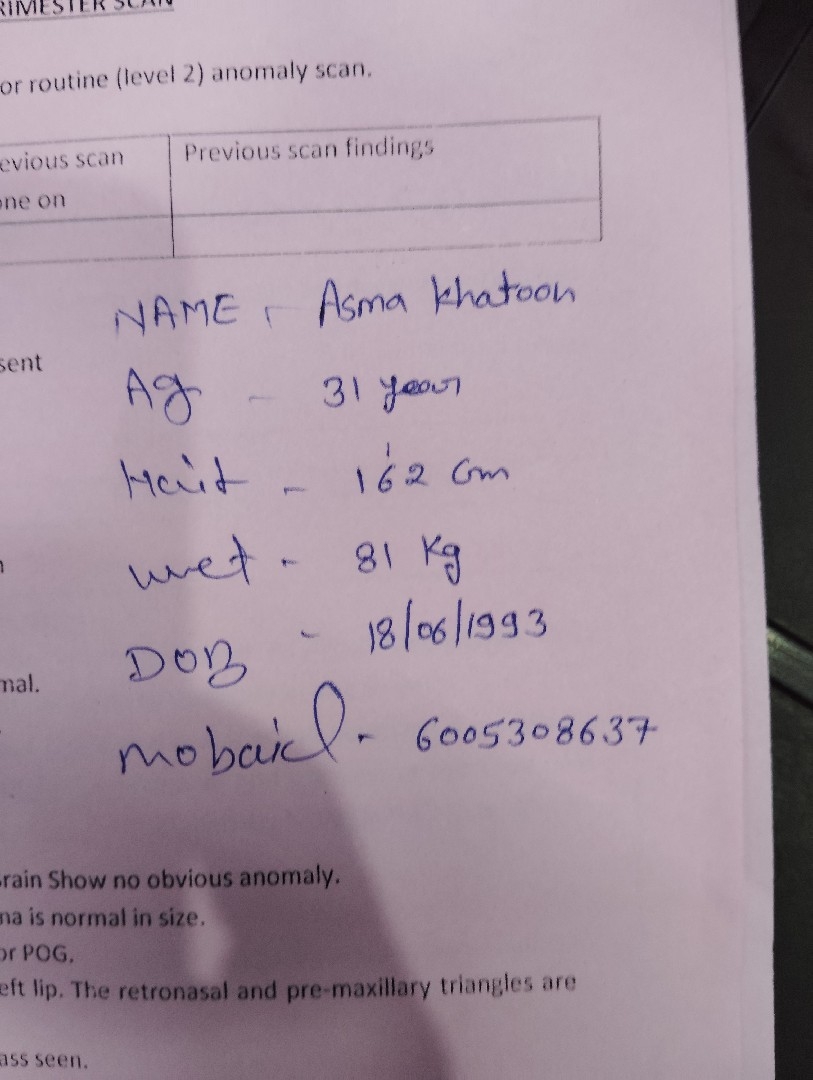 RIMESTER SCAN
or routine (level 2) anomaly scan.
evious scan Previous scan findings
one on
NAME - Asma Khatoon
sent
Ag - 31 year
Hait - 162 Cm
wet - 81 Kg
DOB - 18/06/1993
mal.
mobaicl - 6005308637
rain Show no obvious anomaly.
na is normal in size.
or POG.
eft lip. The retronasal and pre-maxillary triangles are
ass seen.